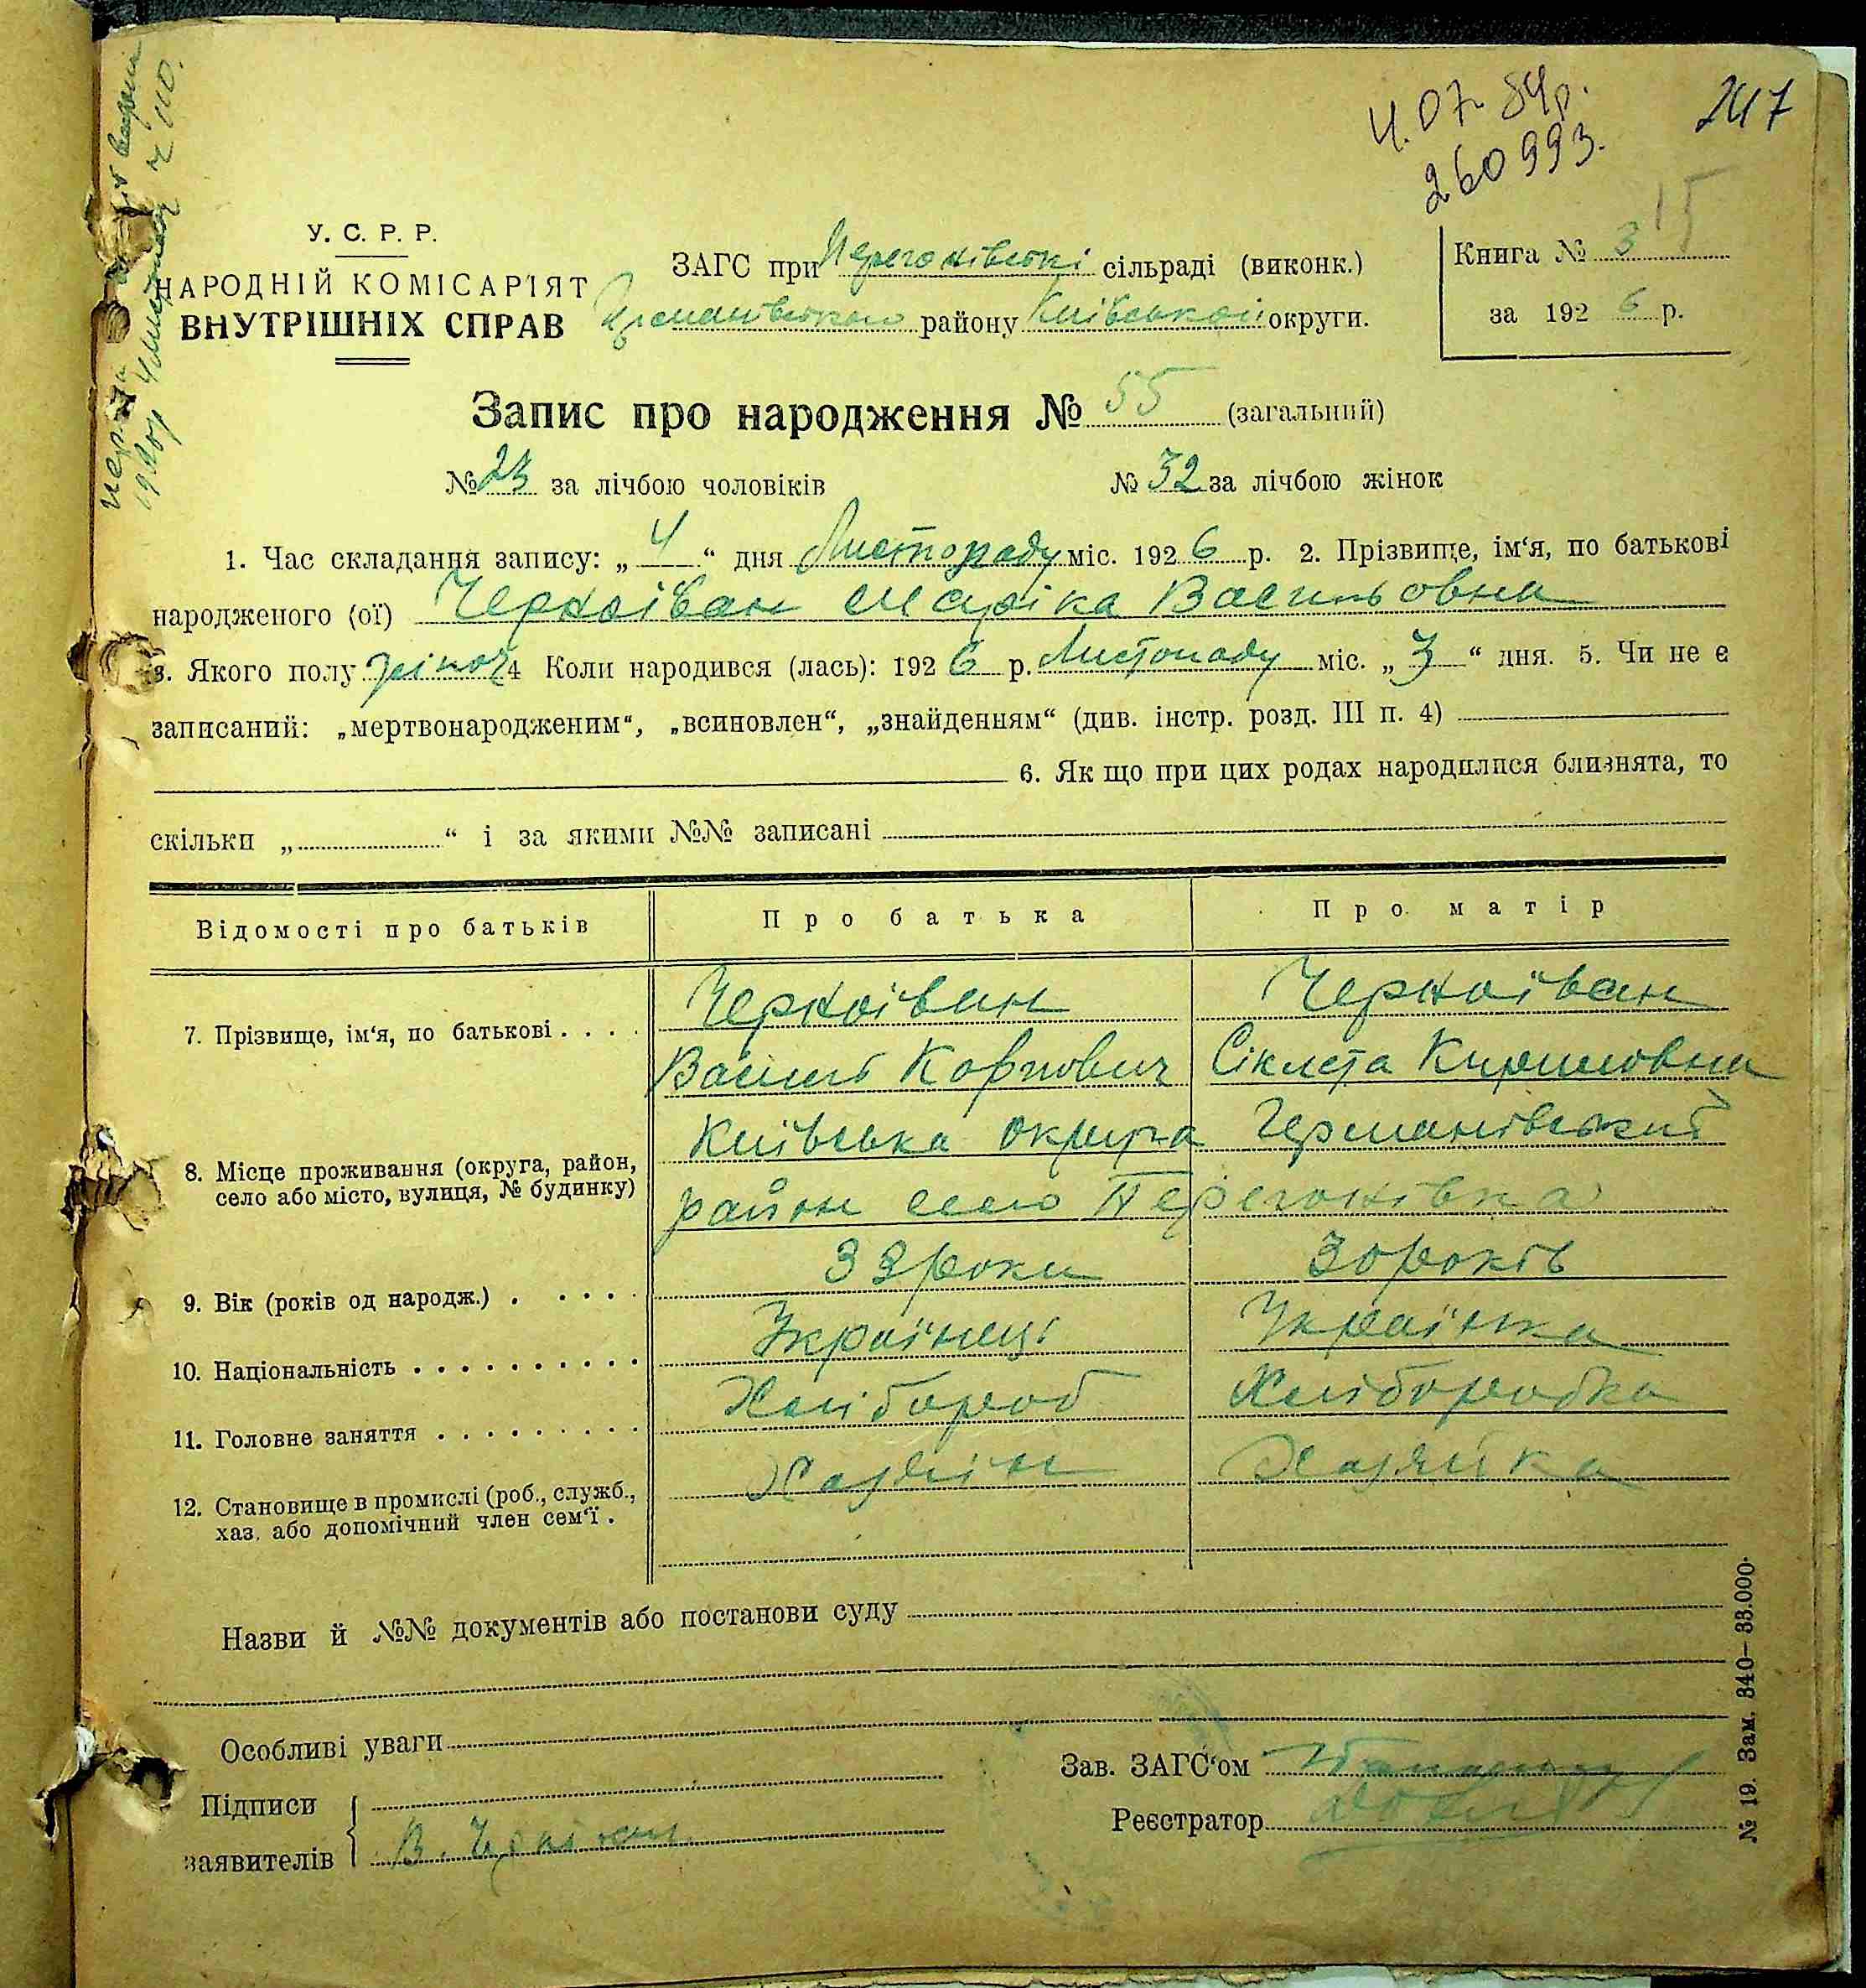 4.07.84р.
260993.
247
15
У. С. Р. Р.
НАРОДНІЙ КОМІСАР'ІЯТ
ВНУТРІШНІХ СПРАВ
ЗАГС при Перегонівські сільраді (виконк.)
Германівського району Київської округи.
Книга № 3
за 1926 р.
Запис про народження № 55 (загальний)
№ 23 за лічбою чоловіків № 32 за лічбою жінок
1. Час складання запису: „4“ дня Листопаду міс. 1926 р. 2. Прізвище, ім‘я, по батькові
народженого (ої) Черноіван Маріка Васильовна
3. Якого полу жіноч 4 Коли народився (лась): 1926 р. Листопаду міс. „3“ дня. 5. Чи не є
записаний: „мертвонародженим“, „всиновлен“, „знайденням“ (див. інстр. розд. III п. 4)
6. Як що при цих родах народилися близнята, то
скільки „ “ і за якими №№ записані
Відомості про батьків Про батька Про матір
7. Прізвище, ім‘я, по батькові . . . . Черноїван Черноїван
Василь Корпович Сіклета Кириловна
8. Місце проживання (округа, район, село або місто, вулиця, № будинку) Київська округа Германівський
район село Перегонівка
9. Вік (років од народж.) . . . . . 33 роки 30 років
10. Національність . . . . . . . . . . Українець Українка
11. Головне заняття . . . . . . . . . Хлібороб Хліборобка
12. Становище в промислі (роб., служб., хаз. або допомічний член сем‘ї . Хазяїн Хазяйка
Назви й №№ документів або постанови суду
Особливі уваги
Зав. ЗАГС‘ом
Підписи
Реєстратор
заявителів В.
№ 19. Зам. 840—33.000.